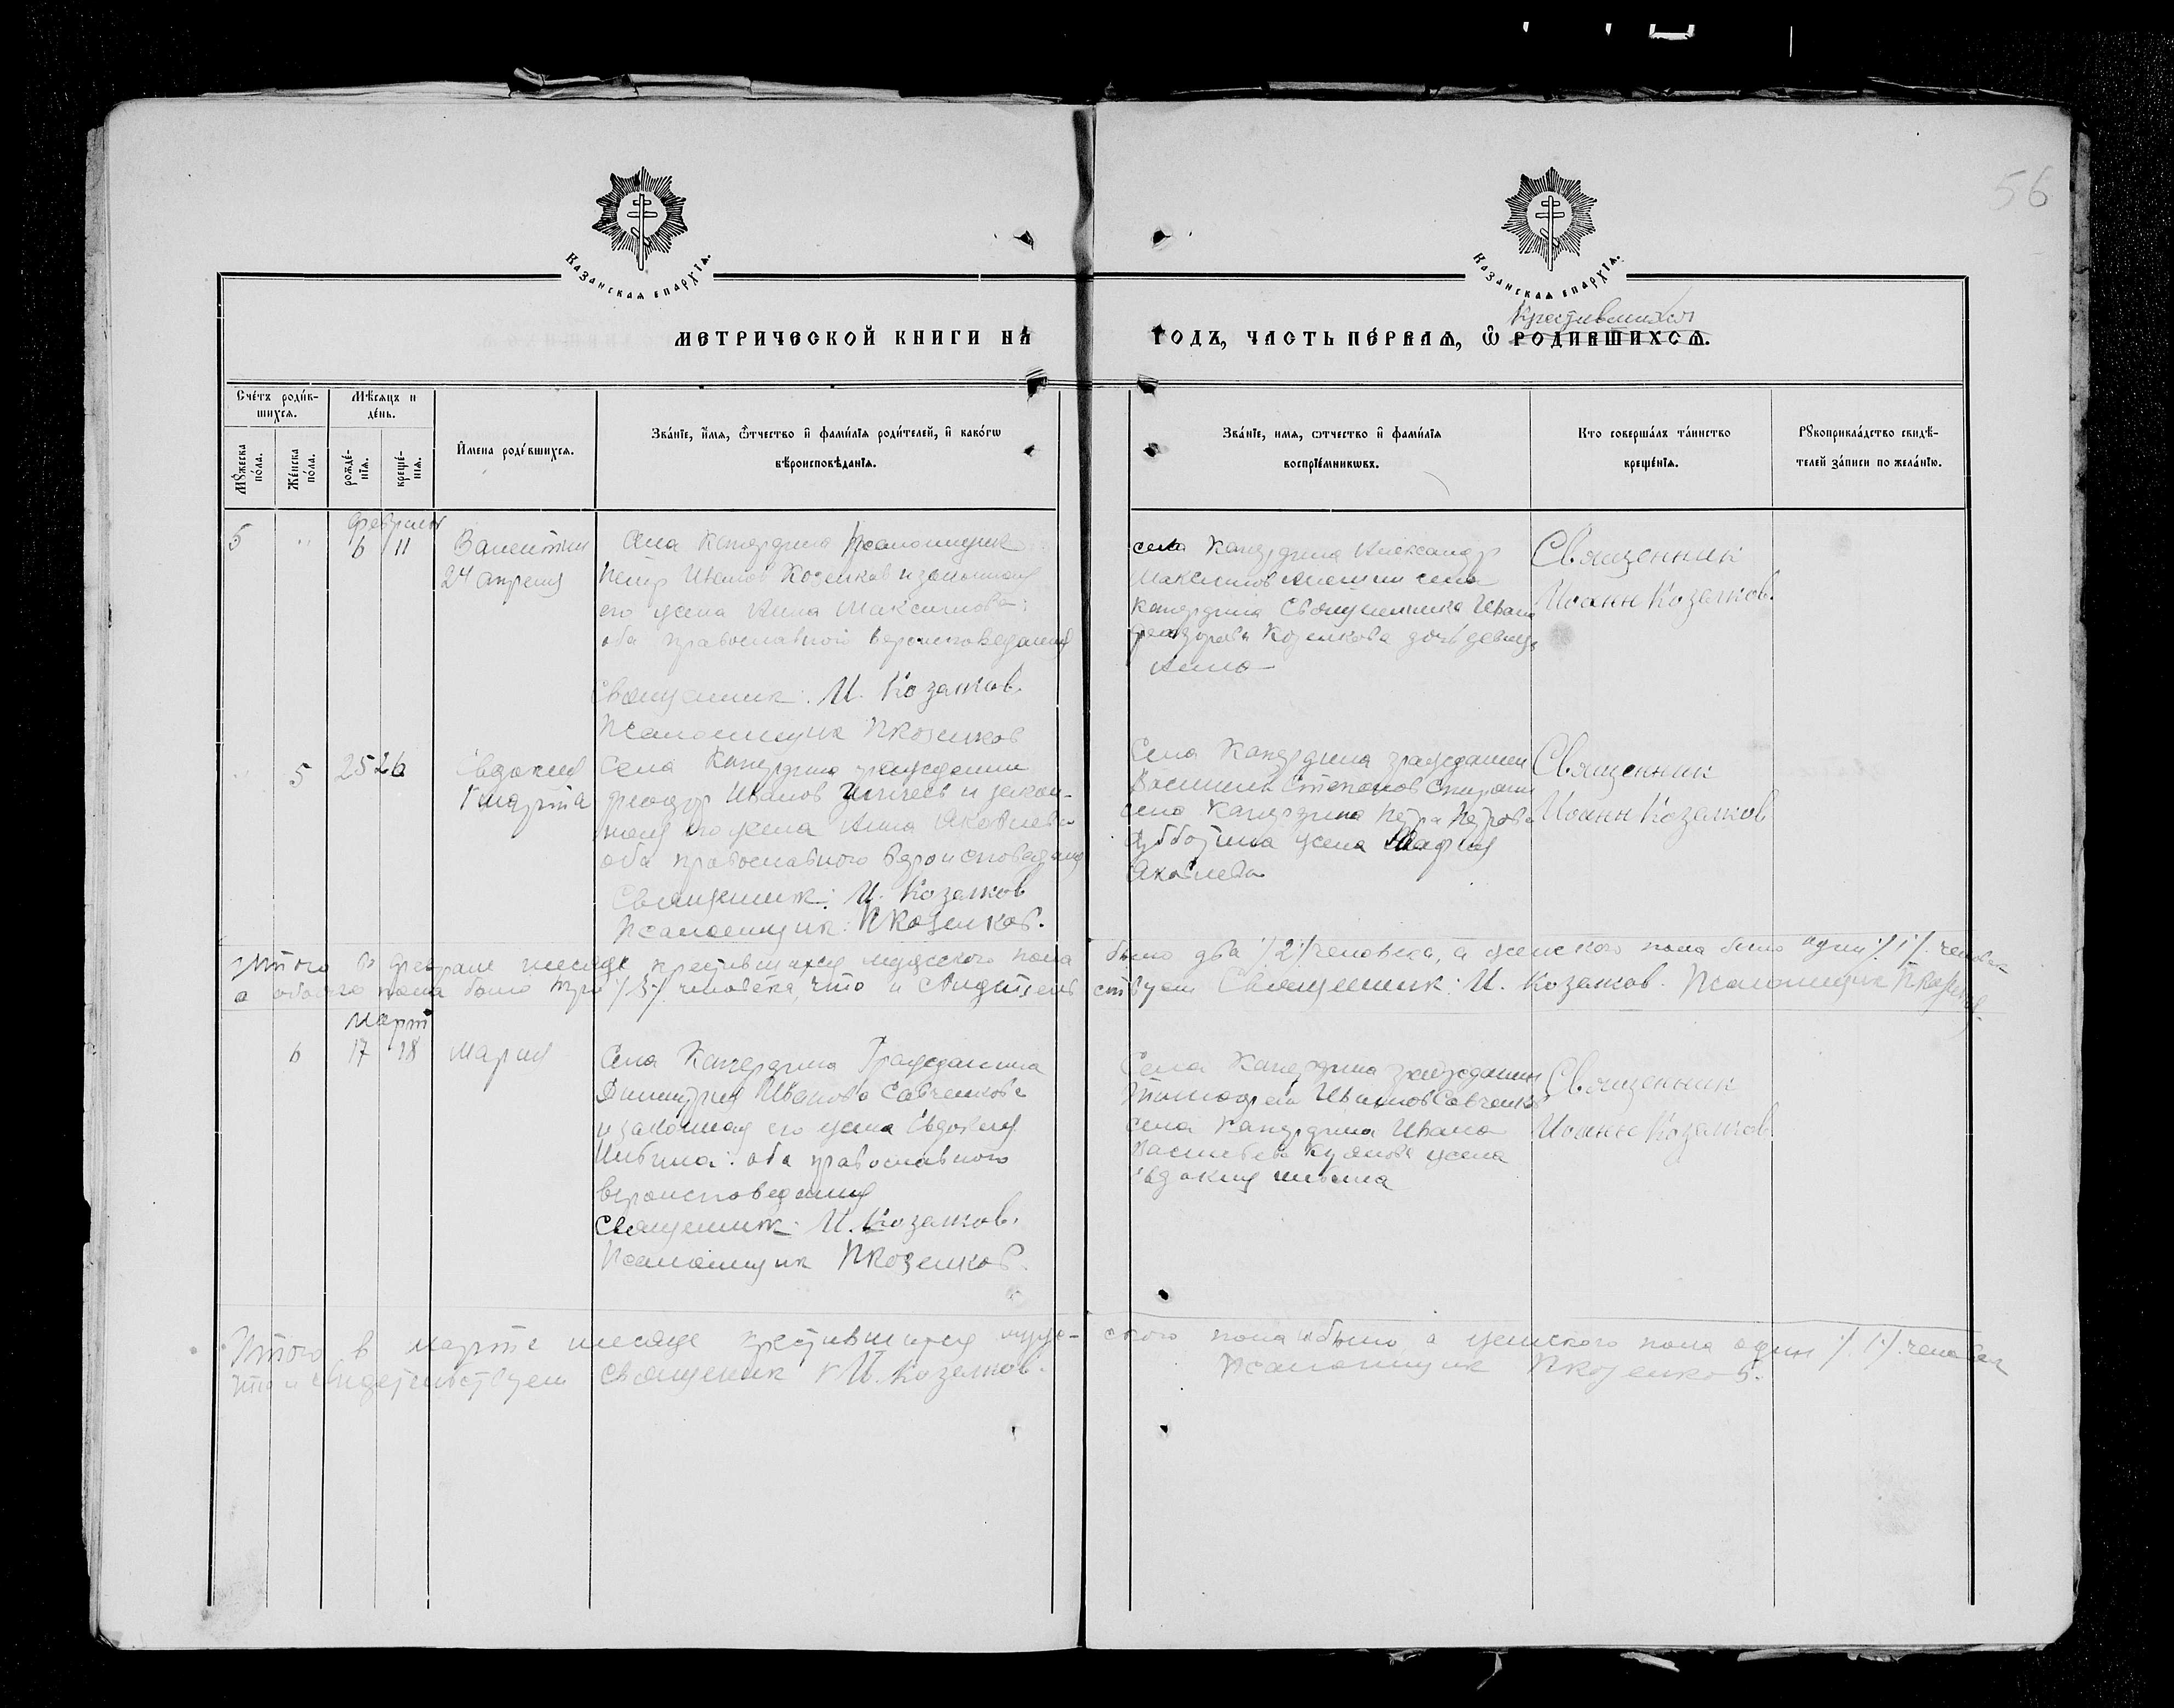 56
Казанская епархїя.
Казанская епархїя.
Крестившихся
МЕТРИЧЕСКОЙ КНИГИ НА
ГОДЪ, ЧАСТЬ ПЕРВАЯ, Ѡ РОДИВШИХСЯ.
Счетъ родив-
шихся.
Мѣсяцъ и
день.
Мужеска
пола.
Женска
пола.
рожде-
нїя.
креще-
нїя.
Имена родившихся.
Званїе, имя, ѿчество и фамилїя родителей, и какогѡ
вѣроисповѣданїя.
Званїе, имя, ѿчество и фамилїя
воспрїемникѡвъ.
Кто совершалъ таинство
крещенїя.
Рукоприкладство свидѣ-
телей записи по желанїю.
февраля
5 " 6 11 Валентин
24 апреля
Села псаломщик
Петр Иванов Козелков и законная
его жена Анна Максимова:
оба православной вероисповедания
Священник: И. Козелков.
Псаломщик П Козелков
села Александр
Максимов села
Священника Ивана
Феодорова Козелкова дочь девица
Анна
Священник
Иоанн Козелков.
" 5 25 26 Евдокия
1 марта
Села гражданин
Феодор Иванов и закон-
ная его жена Анна Яковлева
оба православного вероисповедания
Священник: И. Козелков
Псаломщик: П Козелков.
Села гражданин
Василий Степанов
села Петра Петрова
жена Мария
Яковлева
Священник
Иоанн Козелков
Итого в феврале месяце крестившихся мужеского пола было два /2/ человека, а женского пола было один /1/ человек
а обоего пола было три /3/ человека, что и свидетельствуем Священник: И. Козелков. Псаломщик П Козелков.
март
6 17 18 Мария
Села Гражданина
Димитрия Иванова Савченкова
и законная его жена Евдокия
оба православного
вероисповедания
Священник: И. Козелков.
Псаломщик П Козелков.
Села гражданин
Тимофей Иванов Савченков
села Ивана
Васильева жена
Евдокия
Священник
Иоанн Козелков.
Итого в марте месяце крестившихся муже- ского пола небыло, а женского пола один /1/ человек
что и свидетельствуем Священник И. Козелков. Псаломщик П Козелков.